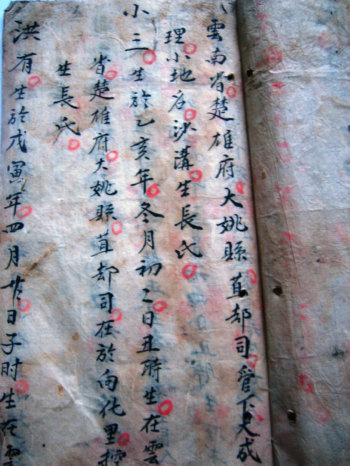 雲南省楚雄府大姚縣苴却司管下大成
理小地名沙溝生長氏
小三生於乙亥年冬月初二日丑时生在雲
省楚雄府大姚縣苴却司在於向化里
生長氏
洪有生於戊寅年四月廿日子时生在雲